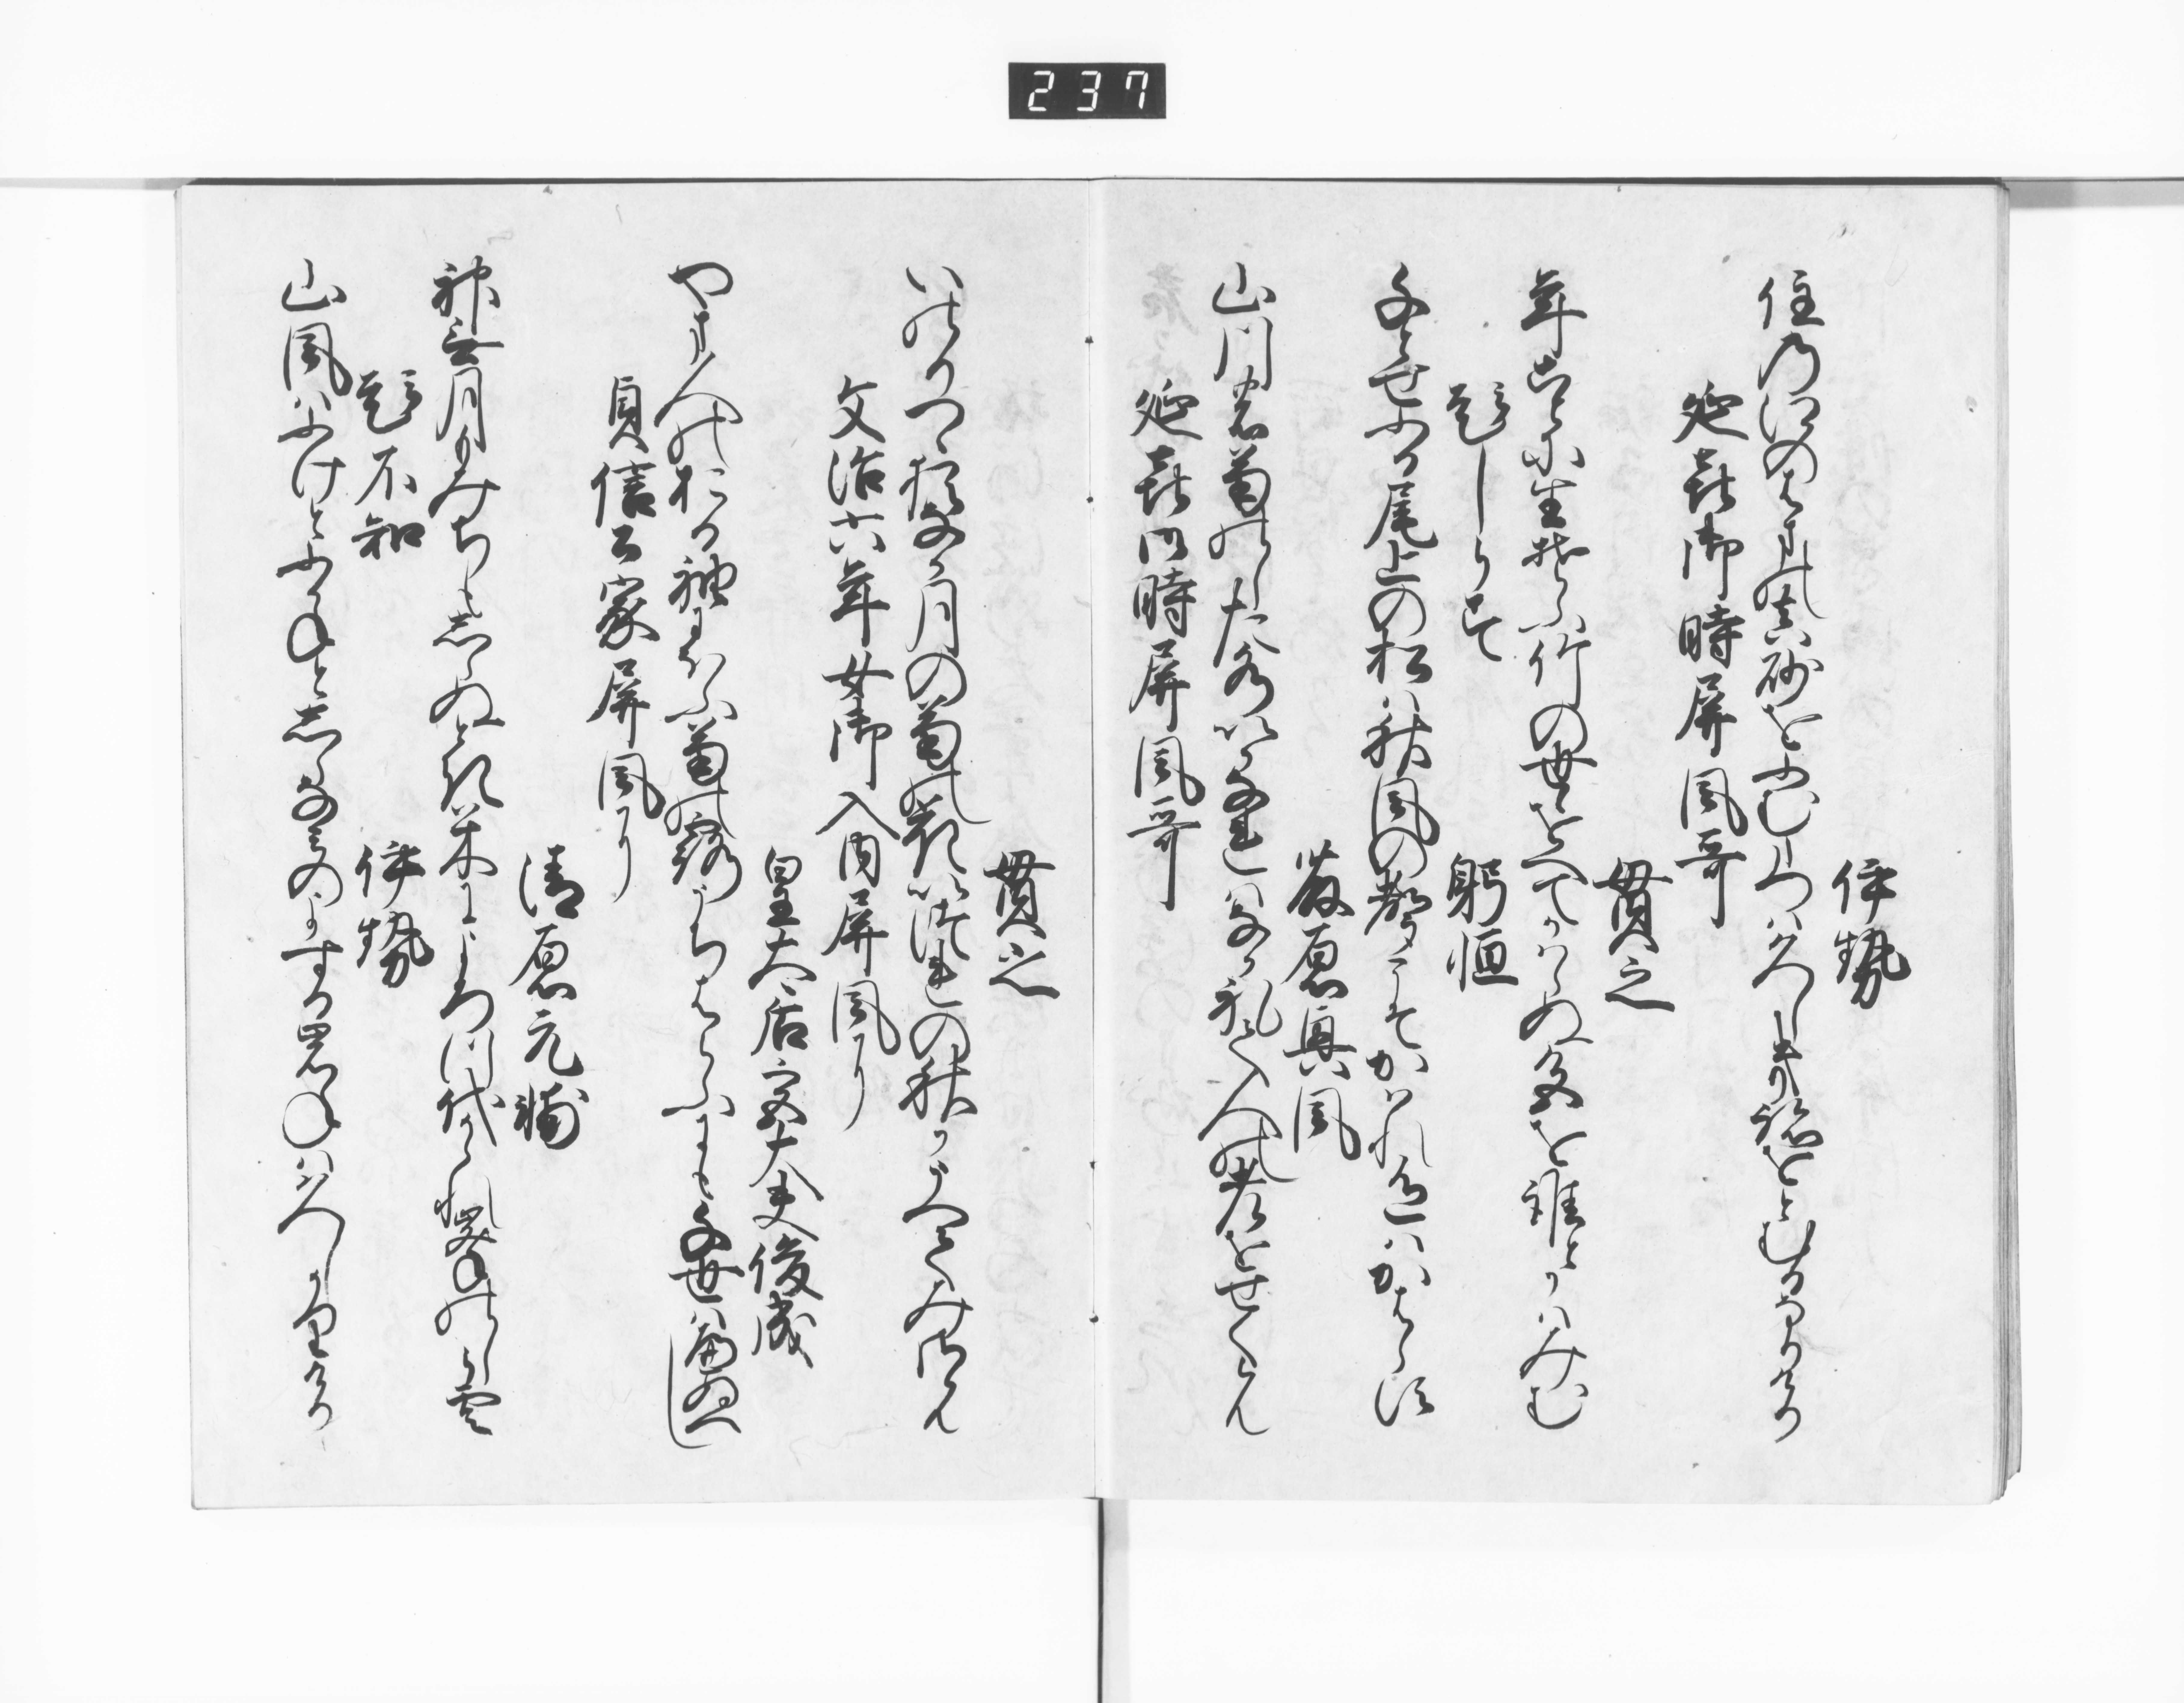 伊勢
住乃江のはまの真砂をふむたつは久しき跡をとむるなりけり
延喜御時屏風哥
貫之
年ことに生そふ竹の世をへてかはらぬ色を誰とかはみむ
題しらす
躬恒
千とせふる尾上の松は秋風の声こそかはれ色はかはらす
藤原興風
山川の菊のした水いかなれはなかれて人の老をせくらん
延喜御時屏風哥
貫之
いのりつゝ猶なか月の菊の花いつれの秋かうへてみさらん
文治六年女御入内屏風に
皇太后宮大夫俊成
やま人のおる袖にほふ菊の露うちはらふにも千世はへぬへし
貞信公家屏風に
清原元輔
神無月もみちもしらぬときは木によろつ代かゝれ峯の白雲
題不知
伊勢
山風はふけとふかねとしらなみのよする岩ねは久しかりけり